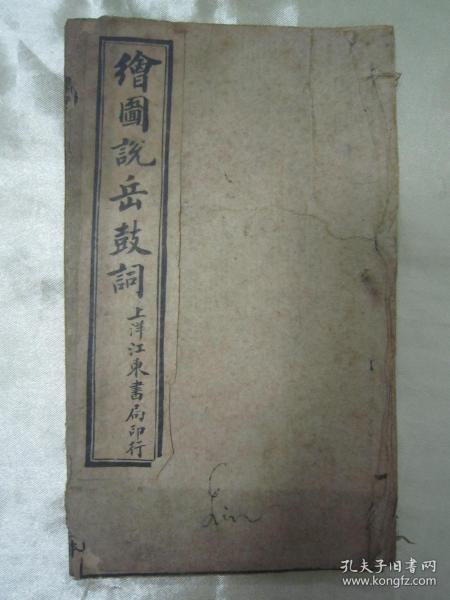 繪圖說岳鼓詞
上洋江東書局印行
孔夫子旧书网
www.kongfz.com